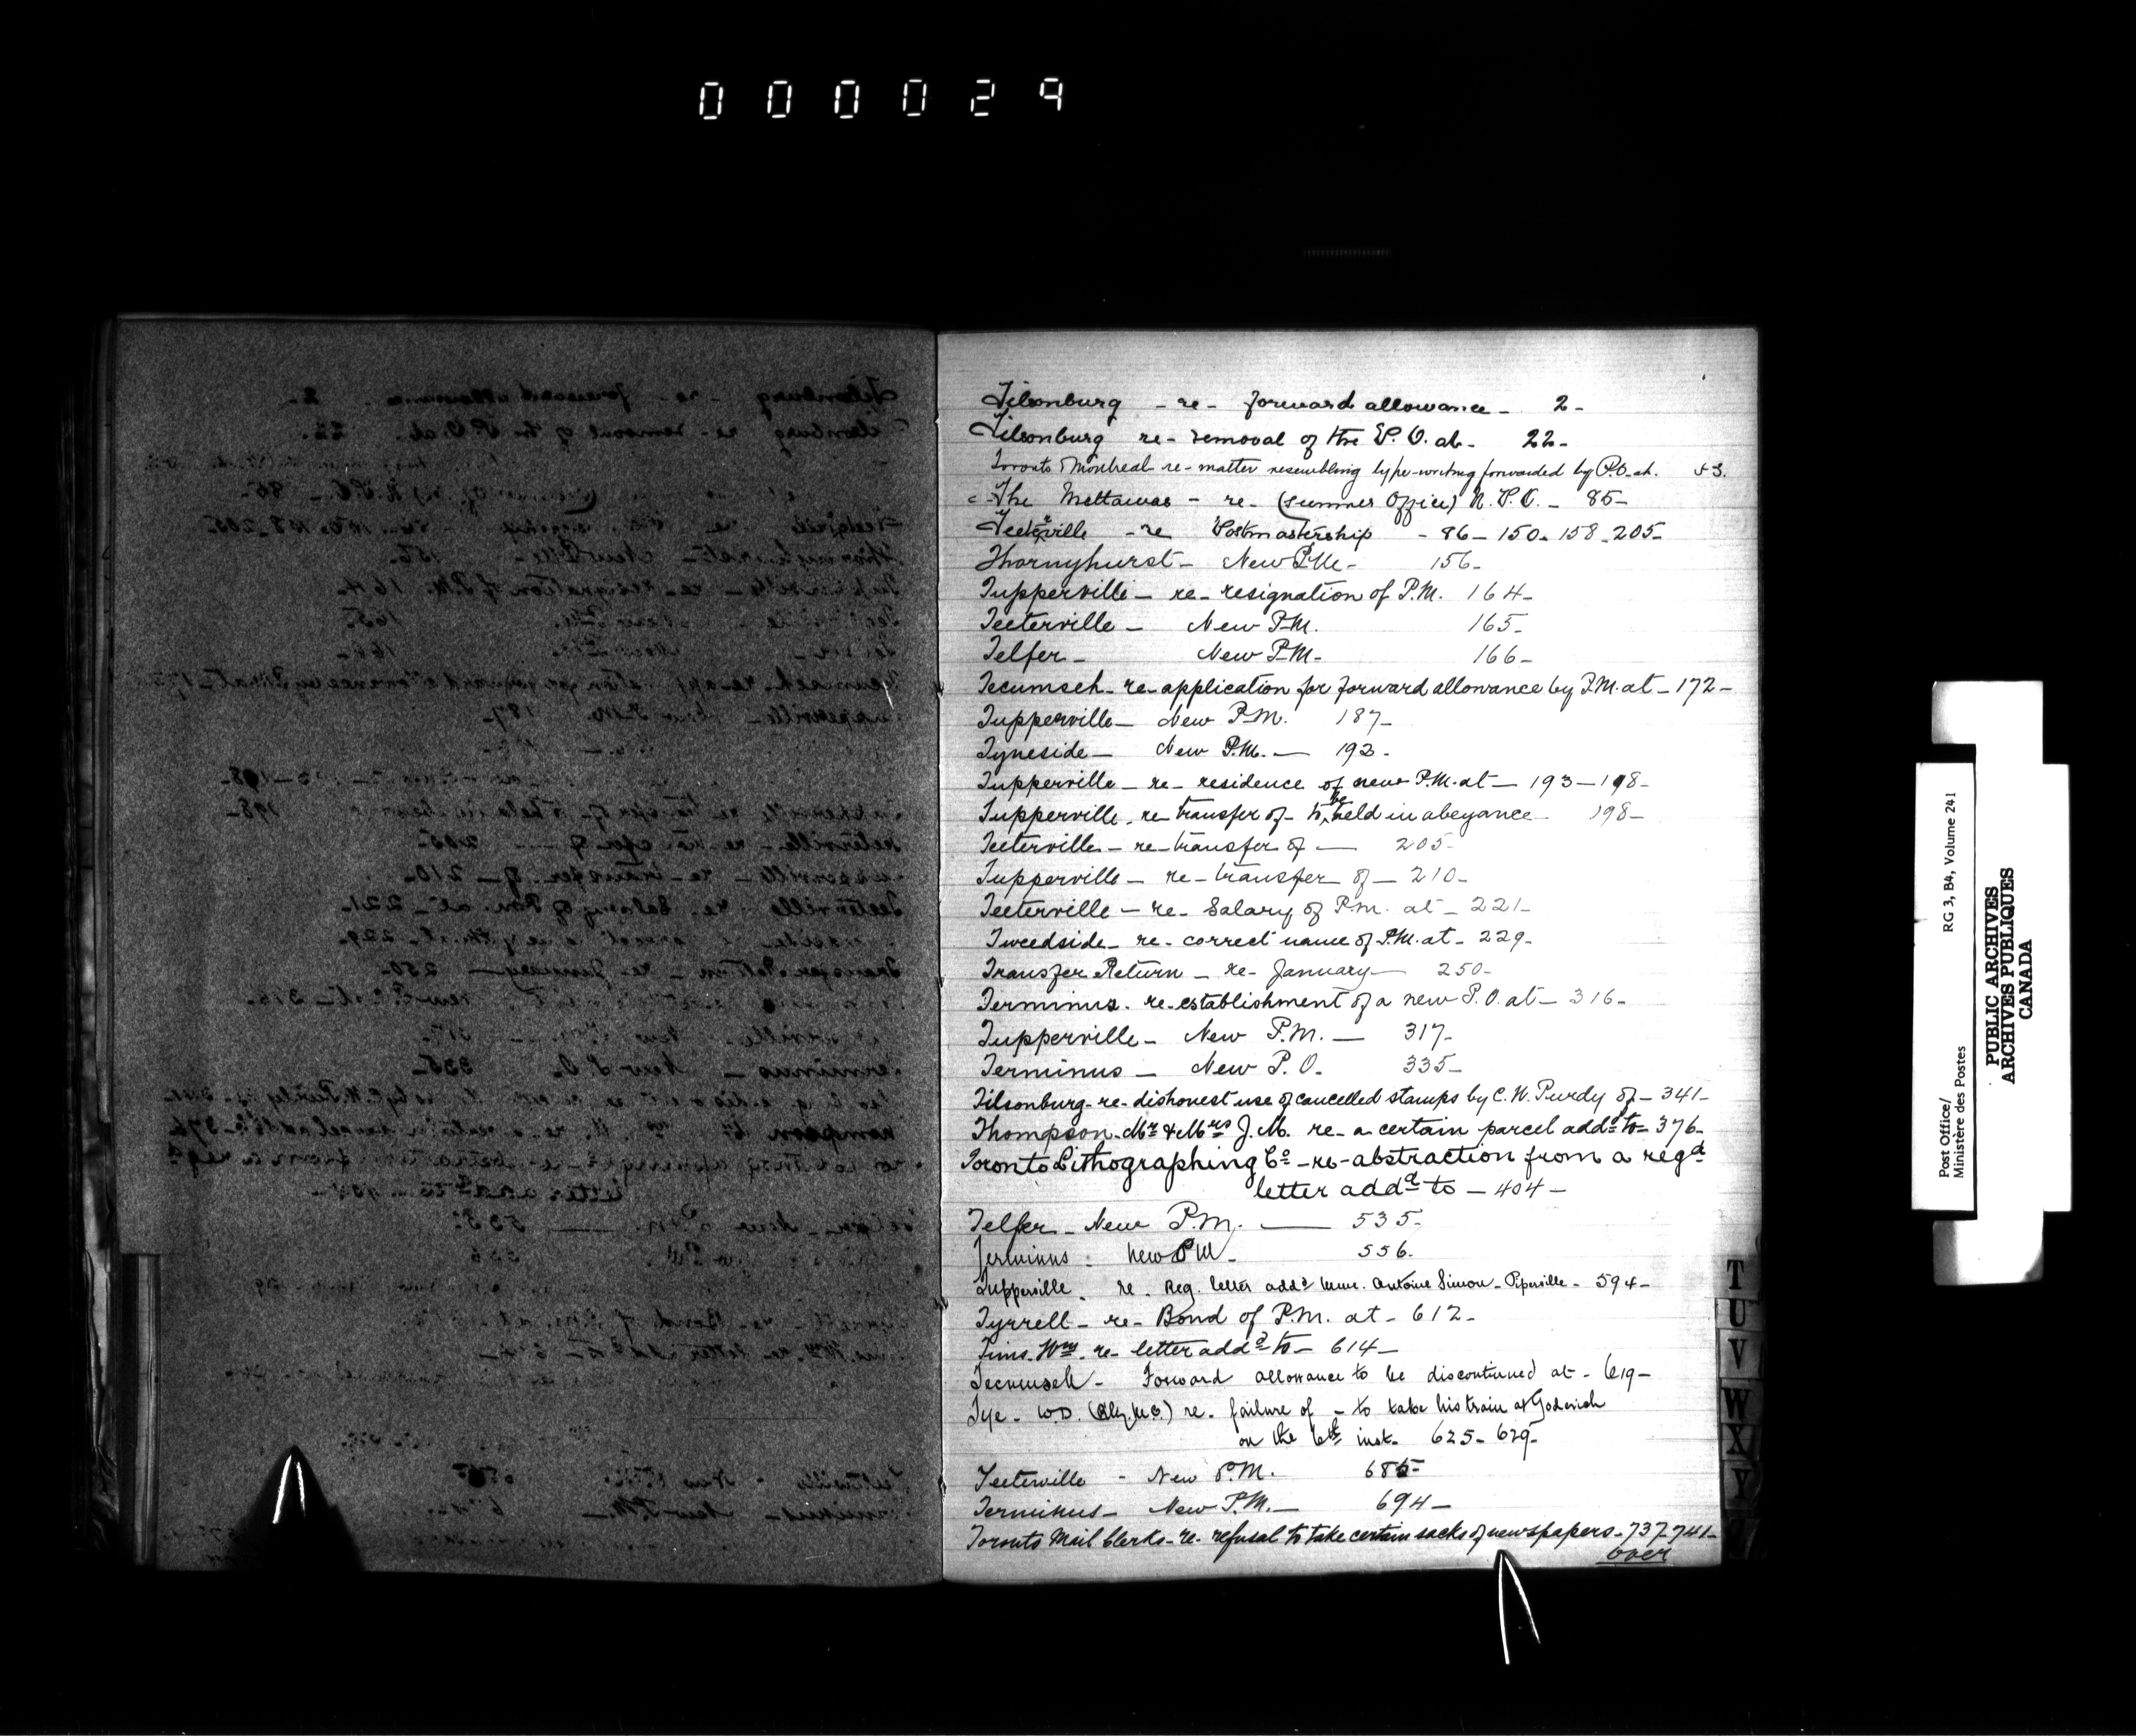 000029
Tilsonburg - re - forward allowance - 2 -
Tilsonburg re - removal of the P.O. at - 22 -
Toronto & Montreal re - matter resembling type-writing forwarded by P.O. at. 53.
The Mettawas - re - (summer Office) N.P.O. - 85 -
Teeterville - re Postmastership - 86 - 150 - 158 - 205 -
Thornyhurst - New P.M. - 156 -
Tupperville - re - resignation of P.M. 164 -
Teeterville - New P.M. 165 -
Telfer - New P.M. - 166 -
Tecumseh - re - application for forward allowance by P.M. at - 172 -
Tupperville - New P.M. 187 -
Tyneside - New P.M. - 192 -
Tupperville - re - residence of new P.M. at - 193 - 198 -
Tupperville - re transfer of - to be held in abeyance - 198 -
Teeterville - re - transfer of - 205 -
Tupperville - re - transfer of - 210 -
Teeterville - re - Salary of P.M. at - 221 -
Tweedside - re - correct name of P.M. at - 229 -
Transfer Return - re - January - 250 -
Terminus - re - establishment of a new P.O. at - 316 -
Tupperville - New P.M. - 317 -
Terminus - New P.O. - 335 -
Tilsonburg - re - dishonest use of cancelled stamps by C.W. Purdy of - 341 -
Thompson - Mr & Mrs J.M. re - a certain parcel addd to - 376 -
Toronto Lithographing Co - re - abstraction from a regd
letter addd to - 404 -
Telfer - New P.M. - 535 -
Terminus - New P.M. - 556.
Tupperville - re - Reg. letter addd Mme. Antoine Simon - Piperville - 594 -
Tyrrell - re - Bond of P.M. at - 612 -
Tims. Wm - re - letter addd to - 614 -
Tecumseh - Forward allowance to be discontinued at - 619 -
Tye - W.D. (Rly. M.C.) re - failure of - to take his train at Goderich
on the 6th inst. 625 - 629 -
Teeterville - New P.M. 685 -
Terminus - New P.M. - 694 -
Toronto Mail Clerks - re - refusal to take certain sacks of newspapers - 737 - 741 -
over
T
U
V
W
X
Y
Z
Post Office/ RG 3, B4, Volume 241
Ministère des Postes
PUBLIC ARCHIVES
ARCHIVES PUBLIQUES
CANADA